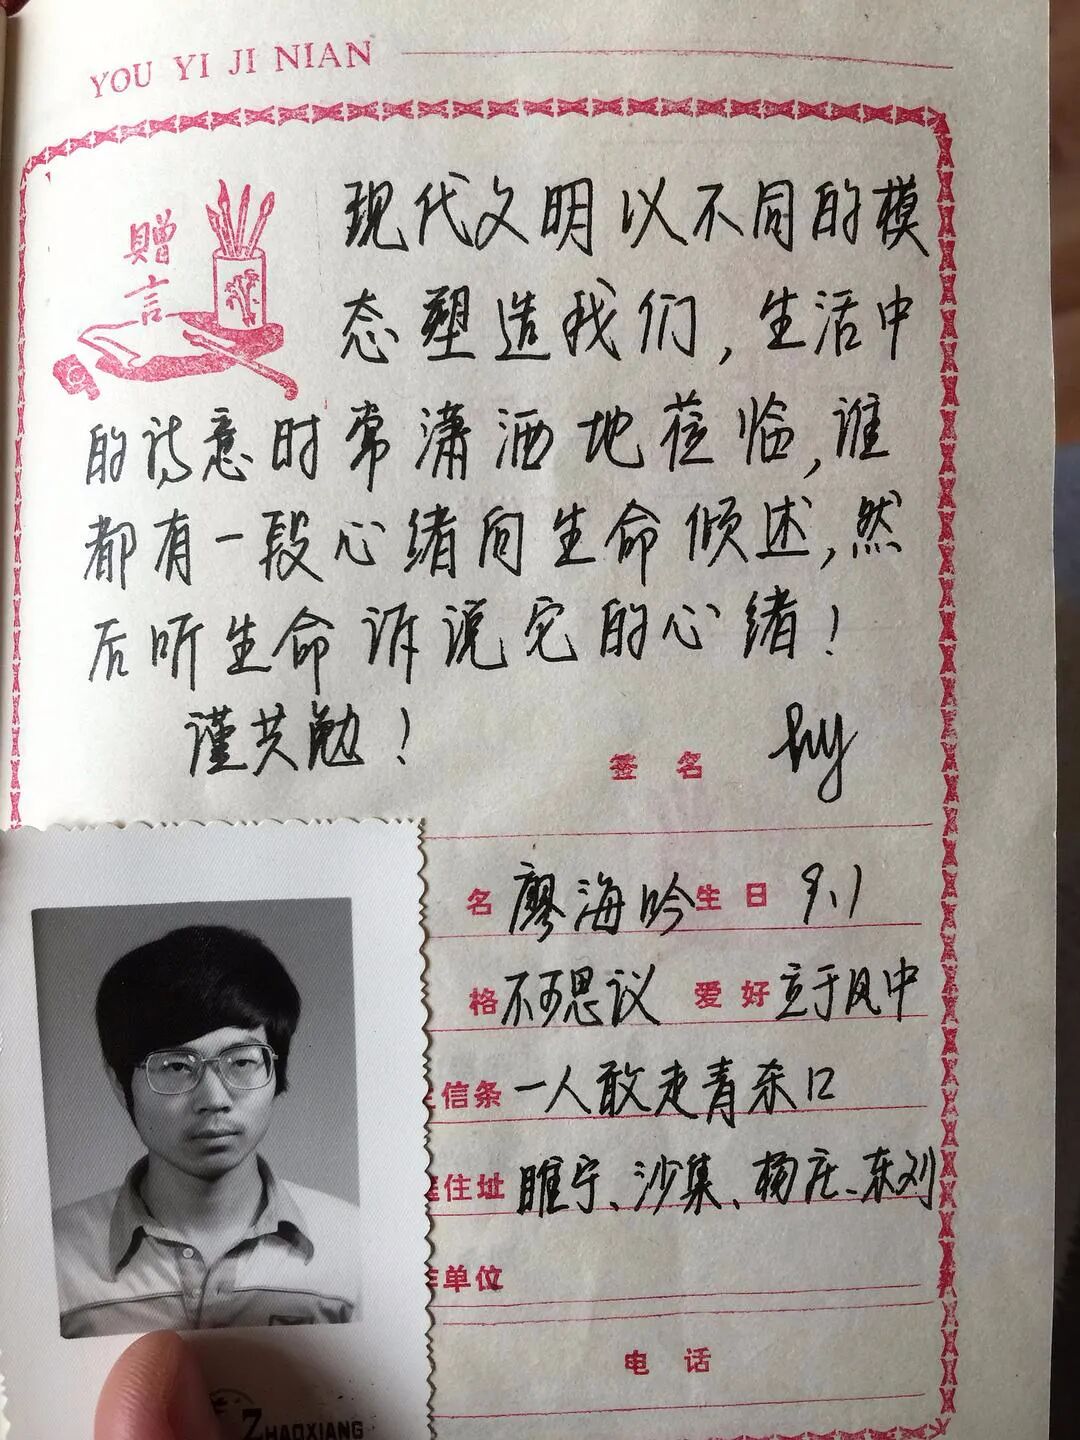 YOU YI JI NIAN
赠言
现代文明以不同的模
态塑造我们，生活中
的诗意时常潇洒地莅临，谁
都有一段心绪向生命倾述，然
后听生命诉说它的心绪！
谨共勉！
签名 hy
名 廖海吟 生日 9、1
格 不可思议 爱好 立于风中
信条 一人敢走青杀口
住址 睢宁、沙集、杨庄、东刘
单位
电话
ZHAOXIANG